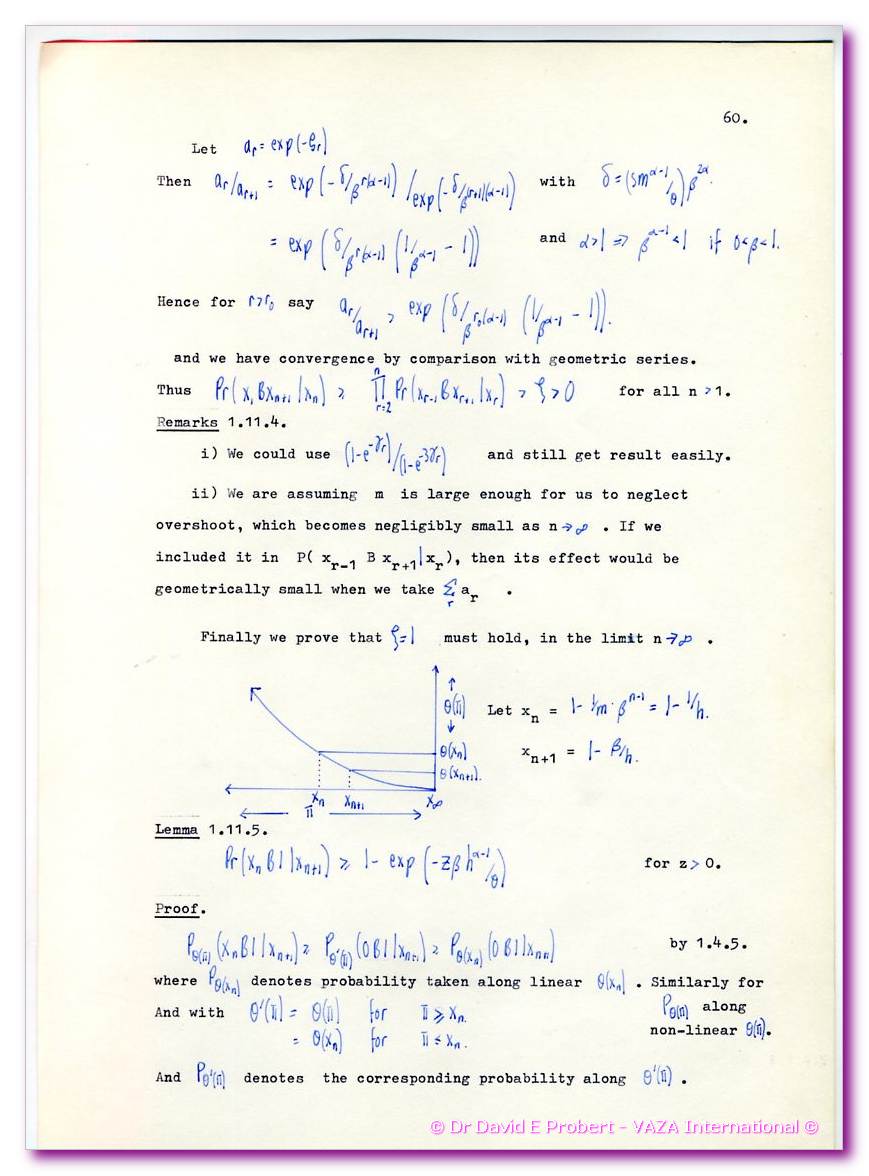 60.
Let a_r = exp(-ξ_r)
Then a_r/a_{r+1} = exp(-δ/β^{r(α-1)}) / exp(-δ/β^{(r+1)(α-1)}) with δ = (3m^{α-1}/θ)β^{2α}.
= exp(δ/β^{r(α-1)} (1/β^{α-1} - 1)) and α>1 ⇒ β^{α-1}<1 if 0<β<1.
Hence for r>r_0 say a_r/a_{r+1} > exp(δ/β^{r_0(α-1)} (1/β^{α-1} - 1)).
and we have convergence by comparison with geometric series.
Thus Pr(x_1 B x_{n+1} | x_n) ≥ ∏_{r=2}^{n} Pr(x_{r-1} B x_{r+1} | x_r) > ξ > 0 for all n >1.
Remarks 1.11.4.
i) We could use (1-e^{-γ_r})/(1-e^{-3γ_r}) and still get result easily.
ii) We are assuming m is large enough for us to neglect
overshoot, which becomes negligibly small as n→∞ . If we
included it in P( x_{r-1} B x_{r+1}|x_r), then its effect would be
geometrically small when we take Σ_r a_r .
Finally we prove that ξ=1 must hold, in the limit n→∞ .
↑
θ(π)
↓
Let x_n = 1- 1/m·β^{n-1} = 1- 1/h.
θ(x_n)
x_{n+1} = 1- β/h.
θ(x_{n+1}).
x_n x_{n+1} x_∞
π
Lemma 1.11.5.
Pr(x_n B 1 | x_{n+1}) ≥ 1- exp(-zβ h^{α-1}/θ) for z> 0.
Proof.
P_{θ(π)}(x_n B 1 | x_{n+1}) ≥ P_{θ'(π)}(0 B 1 | x_{n+1}) ≥ P_{θ(x_n)}(0 B 1 | x_{n+1}) by 1.4.5.
where P_{θ(x_n)} denotes probability taken along linear θ(x_n) . Similarly for
P_{θ(π)} along
And with θ'(π) = θ(π) for π ≥ x_n.
non-linear θ(π).
= θ(x_n) for π < x_n.
And P_{θ'(π)} denotes the corresponding probability along θ'(π) .
© Dr David E Probert – VAZA International ©